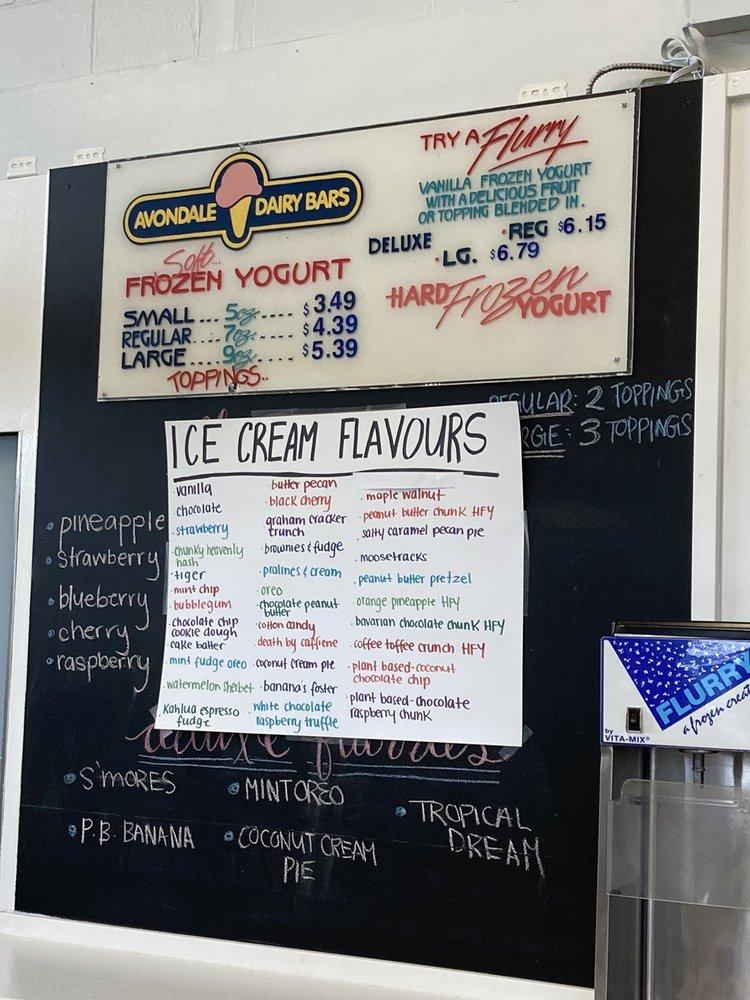 AVONDALE DAIRY BARS
Soft...
FROZEN YOGURT
SMALL ... 5oz. .... $3.49
REGULAR .. 7oz. .... $4.39
LARGE .... 9oz. .... $5.39
TOPPINGS..
TRY A Flurry
VANILLA FROZEN YOGURT
WITH A DELICIOUS FRUIT
OR TOPPING BLENDED IN.
DELUXE · REG $6.15
· LG. $6.79
HARD Frozen YOGURT
REGULAR: 2 TOPPINGS
3 TOPPINGS
ICE CREAM FLAVOURS
· vanilla
· chocolate
· strawberry
· chunky heavenly
hash
· tiger
· mint chip
· bubblegum
· chocolate chip
cookie dough
· cake batter
· mint fudge oreo
· watermelon sherbet
· Kahlua espresso
fudge
· butter pecan
· black cherry
· graham cracker
crunch
· brownies & fudge
· pralines & cream
· oreo
· chocolate peanut
butter
· cotton candy
· death by caffiene
· coconut cream pie
· banana's foster
· white chocolate
raspberry truffle
· maple walnut
· peanut butter chunk HFY
· salty caramel pecan pie
· moosetracks
· peanut butter pretzel
· orange pineapple HFY
· bavarian chocolate chunk HFY
· coffee toffee crunch HFY
· plant based-coconut
chocolate chip
· plant based-chocolate
raspberry chunk
• pineapple
• strawberry
• blueberry
• cherry
• raspberry
deluxe flurries
• S'MORES
• P.B. BANANA
• MINT OREO
• COCONUT CREAM
PIE
• TROPICAL
DREAM
FLURRY
a frozen creat
by
VITA-MIX®